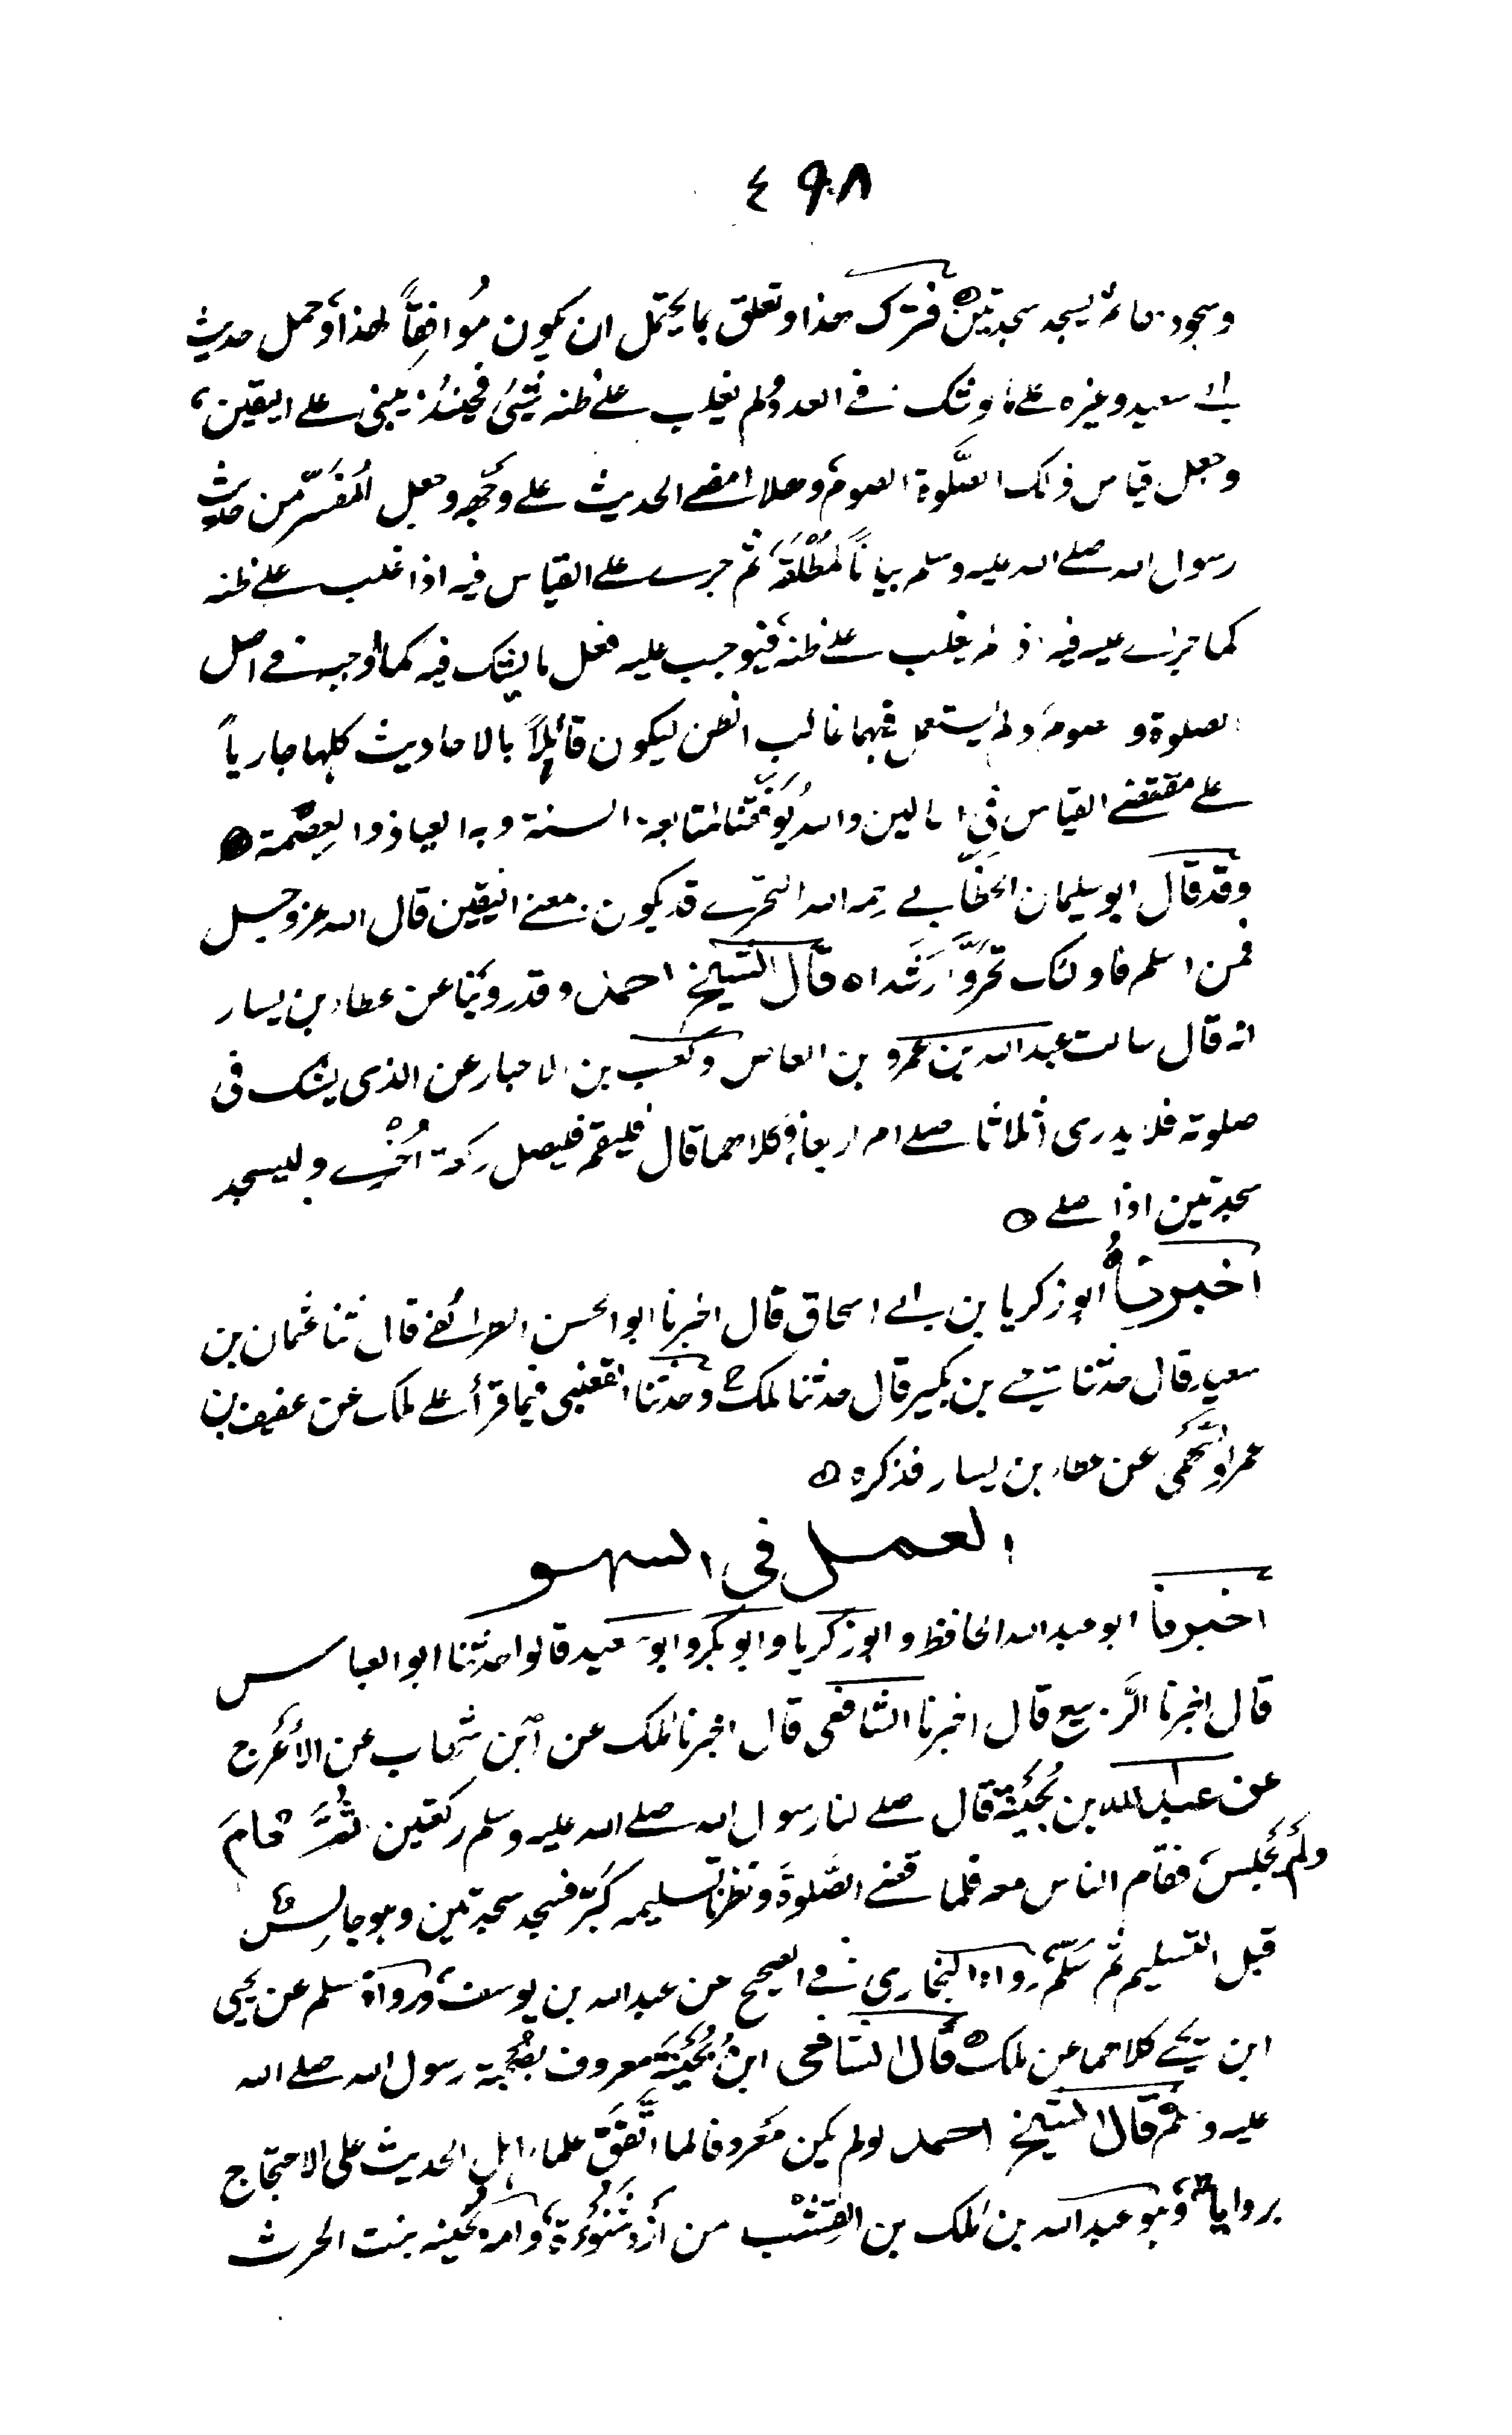 ٤٩٨
وسجوده ثم يسجد سجدتين فترك هذا وتعلق بما يحتمل ان يكون مُوافِقاً لهذا وحمل حديث
ابي سعيد وغيره على ما لو شك في العدد ولم يغلب على ظنه شيئ فحينئذ يبنى على اليقين،
وجعل قياس ذلك الصَّلوة الصوم وهلا امضى الحديث على وجهه وجعل المُفسَّر من حديث
رسول الله صلى الله عليه وسلم بياناً لمُطْلَقه ثم جرى على القياس فيه اذا غلب على ظنه
كما جرى عليه فيه اذا لم يغلب على ظنه فيوجب عليه فعل ما يشك فيه كما اوجبه في اصل
الصلوة و صومه ولم يستعمل فيهما غالب الظن ليكون قائلاً بالاحاديث كلها جارياً
على مقتضى القياس في الحالين والله يُوَفِّقُنا لمتابعة السنة وبه العياذ والعِصْمة
وقد قال ابو سليمان الخطّابي رحمه الله التحرى قد يكون بمعنى اليقين قال الله عز وجل
فمن اسلم فاولئك تحرَّوْا رَشَدا ه قال الشيخ احمد وقد روينا عن عطاء بن يسار
انه قال سالت عبد الله بن عمرو بن العاص وكعب بن الاحبار عن الذى يشك فى
صلوته فلا يدرى أثلاثا صلى ام اربعا فكلاهما قال فليقم فليصل ركعة اُخْرى وليسجد
سجدتين اذا صلى ه
اخبرناهُ ابو زكريا بن ابي اسحاق قال اخبرنا ابو الحسن الطرائفى قال ثنا عثمان بن
سعيد قال حدثنا يحيى بن بكير قال حدثنا ملك ح وحدثنا القعنبى فيما قرأ على ملك عن عفيف بن
عمرو السَّهمى عن عطاء بن يسار فذكره ه
العمل فى السهو
اخبرنا ابو عبد الله الحافظ وابو زكريا وابو بكر وابو سعيد قالوا حدثنا ابو العباس
قال اخبرنا الرَّبيع قال اخبرنا الشافعى قال اخبرنا ملك عن ابن شهاب عن الاعْرج
عن عبد الله بن بُحَيْنَة قال صلى لنا رسول الله صلى الله عليه وسلم ركعتين ثُمَّ قامَ
ولَمْ يَجْلِسْ فقام الناس معه فلما قضى الصَّلوةَ ونظرنا تسليمه كبَّر فسجد سجدتين وهو جالِسٌ
قبل التسليم ثم سَلَّمَ رواه البخارى فى الصحيح عن عبد الله بن يوسف ورواه مسلم عن يحيى
ابن يحيى كلاهما عن ملك ه قال الشافعى ابنُ بُحَيْنَة معروف بصُحْبة رسول الله صلى الله
عليه وسلم قال الشيخ احمد لو لم يكن معروفا لما اتَّفَقَ علماء اهل الحديث على الاحتجاج
برواياته وهو عبد الله بن ملك بن القِشْب من أزْد شَنُوْءَة وامه بحينه بنت الحرث